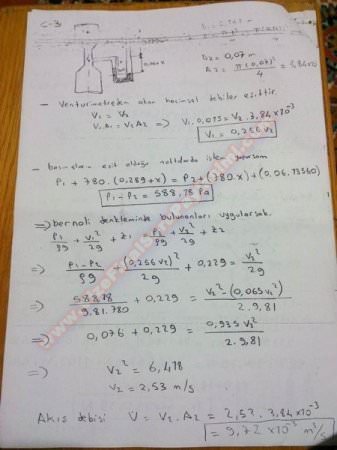 C-3
D2 = 0,07 m
A2 = π(0,07)² / 4 = 3,84x10
- Venturimetreden akan hacimsel debiler eşittir.
V1 = V2
V1.A1 = V2A2 => V1.0,015 = V2.3,84x10⁻³
V1 = 0,256.V2
- basınçların eşit olduğu noktalarda işlem yaparsam
P1 + 780.(0,289+x) = P2 + (780.x) + (0,06.13560)
P1 - P2 = 588,78 Pa
=> bernoli denkleminde bulunanları uygularsak.
P1/ρg + V1²/2g + z1 = P2/ρg + V2²/2g + z2
=> P1-P2/ρg + (0,256V2)²/2g + 0,229 = V2²/2g
=> 588,78/9,81.780 + 0,229 = V2² - (0,065V2²)/2.9,81
=> 0,076 + 0,229 = 0,935V2²/2.9,81
=> V2² = 6,418
V2 = 2,53 m/s
Akış debisi V = V2.A2 = 2,53.3,84x10⁻³
= 9,72 x10⁻³ m³/s